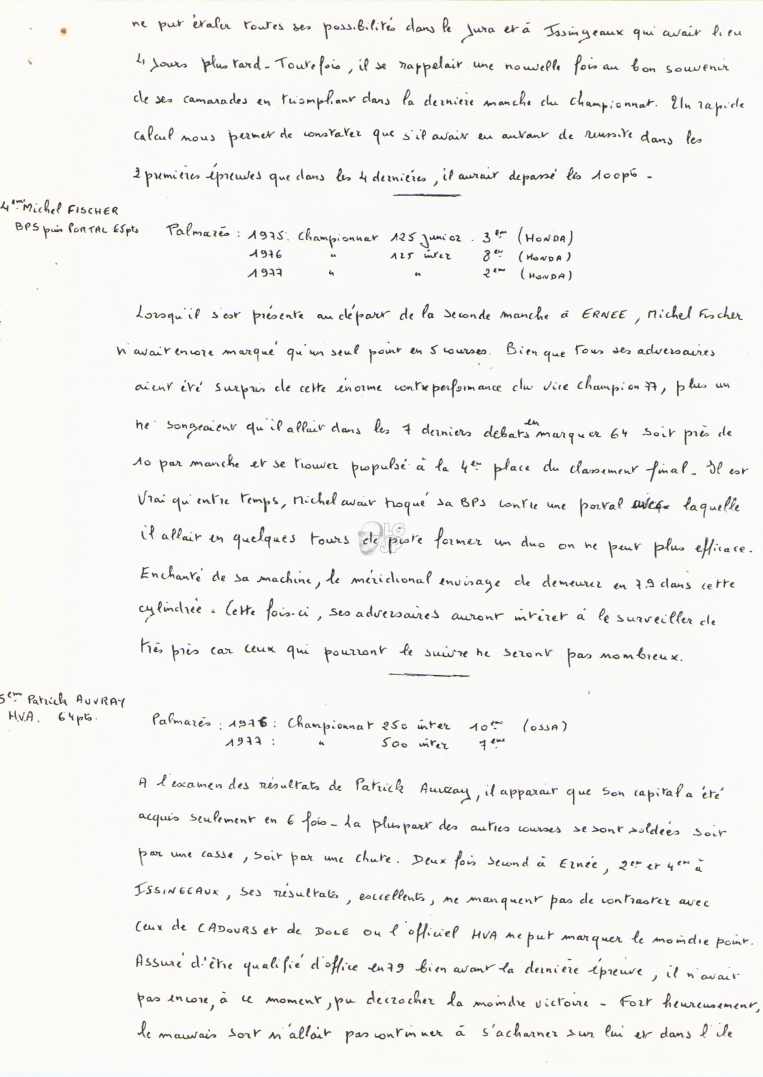 ne put étaler toutes ses possibilités dans le Jura et à Issingeaux qui avait lieu
4 jours plus tard - Toutefois, il se rappelait une nouvelle fois au bon souvenir
de ses camarades en triomphant dans la dernière manche du championnat. Un rapide
calcul nous permet de constater que s'il avait eu autant de reussite dans les
2 premières épreuves que dans les 4 dernières, il aurait depassé les 100 pts -
4ème Michel FISCHER
BPS puis PORTAL 65 pts
Palmarés : 1975 : Championnat 125 junior . 3ème (HONDA)
1976 " 125 inter 8ème (HONDA)
1977 " " 2ème (HONDA)
Lorsqu'il s'est présente au départ de la seconde manche à ERNEE, Michel Fischer
n'avait encore marqué qu'un seul point en 5 courses. Bien que tous ses adversaires
aient été surpris de cette énorme contreperformance du vice champion 77, plus un
ne songeaient qu'il allait dans les 7 derniers débats en marquer 64 soit près de
10 par manche et se trouver propulsé à la 4ème place du classement final - Il est
vrai qu'entre temps, Michel avait troqué sa BPS contre une portal avec laquelle
il allait en quelques tours de piste former un duo on ne peut plus efficace.
Enchanté de sa machine, le méridional envisage de demeurer en 79 dans cette
cylindrée. Cette fois-ci, ses adversaires auront intéret à le surveiller de
très près car ceux qui pourront le suivre ne seront pas nombreux.
5ème Patrick AUVRAY
H.V.A. 64 pts.
Palmarés : 1976 : Championnat 250 inter 10ème (OSSA)
1977 : " 500 inter 7ème
A l'examen des résultats de Patrick Auvray, il apparait que son capital a été
acquis seulement en 6 fois - La pluspart des autres courses se sont soldées soit
par une casse, soit par une chute. Deux fois second à Ernée, 2ème et 4ème à
ISSINGEAUX, ses résultats, excellents, ne manquent pas de contraster avec
ceux de CADOURS et de DOLE ou l'officiel HVA ne put marquer le moindre point.
Assuré d'être qualifié d'office en 79 bien avant la dernière épreuve, il n'avait
pas encore, à ce moment, pu decrocher la moindre victoire - Fort heureusement,
le mauvais sort n'allait pas continuer à s'acharner sur lui et dans l'ile
LG
JP